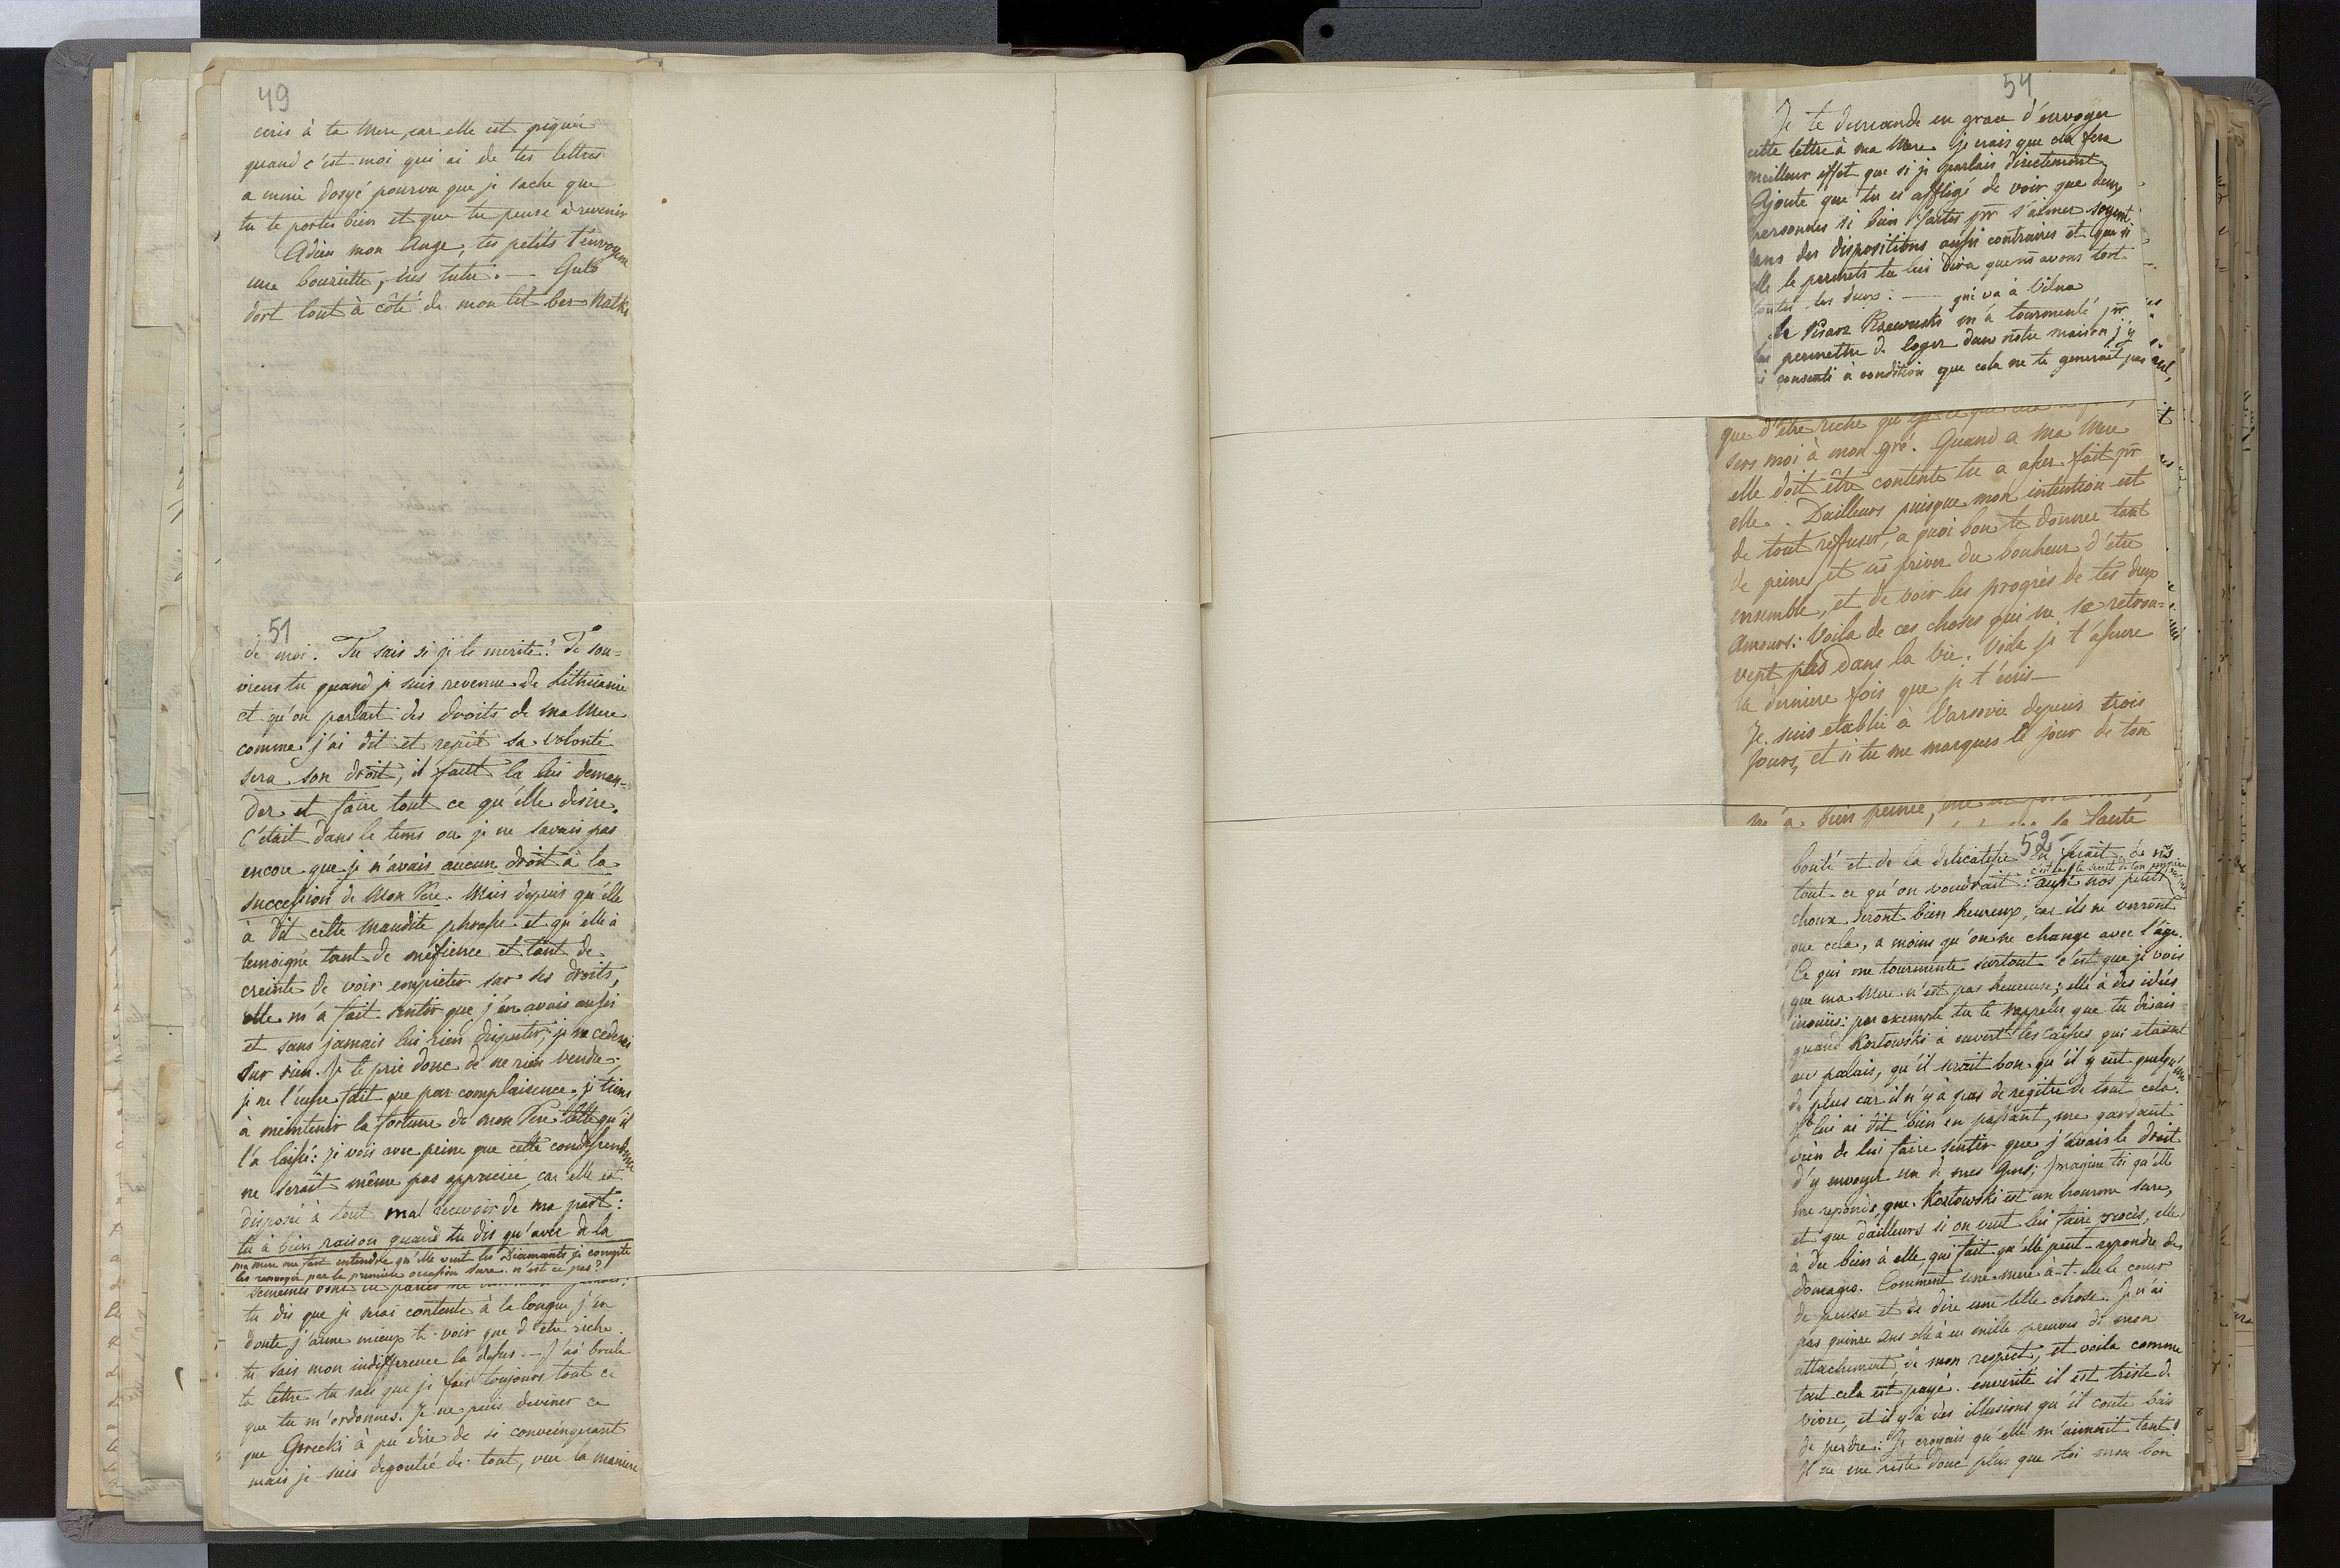 49
ecris à ta Mere, car elle est piquée
quand c'est moi qui ai de tes lettres
a moni pourvu que je sache que
tu te portes bien et que tu pense à revenir
Adieu mon Ange, tes petits t'envoyent
une , tres tutu. — Gulo
dort tout à côté de mon lit bez Matki
51
de moi. Tu sais si je le merite! Te sou=
viens tu quand je suis revenue de Lithuanie
et qu'on parlait des droits de Ma Mere
comme j'ai dit et repété sa volonté
sera son droit, il faut la lui deman=
der et faire tout ce qu'elle desire.
C'était dans le tems ou je ne savais pas
encore que je n'avais aucun droit à la
succession de Mon Pere. Mais depuis qu'elle
à dit cette maudite phrase et qu'elle à
temoigné tant de mefience et tant de
creinte de voir empieter sur ses droits,
elle m'a fait sentir que j'en avais aussi
et sans jamais lui rien disputer, je ne cederai
sur rien. Je te prie donc de ne rien vendre;
je ne l'eusse fait que par complaisence, je tiens
à meintenir la fortune de mon Pere telle qu'il
l'a laissé: je vois avec peine que cette condescendence
ne serait même pas appreciée, car elle est
disposée à tout mal recevoir de ma part:
tu à bien raison quand tu dis qu'avec de la
ma mere me fait entendre qu'elle veut les Diamants je compte
les renvoyer par la premiere occasion sure. n'est ce pas?
tu dis que je serai contente à la longue, j'en
doute j'aime mieux te voir que d'etre riche.
tu sais mon indifference la desus. — J'ai brulé
ta lettre tu sais que je fais toujours tout ce
que tu m'ordonnes. Je ne puis deviner ce
que Gorecki à pu dire de si conveinquant
mais je suis degoutée de tout, vue la maniere
54
Je te demande en grace d'envoyer
cette lettre à ma Mere. je crois que cela fera
meilleur effet que si je parlais directement
Ajoute que tu es affligé de voir que deux
personnes si bien faites pr s'aimer soyent
dans des dispositions aussi contraires et que si
elle le permets tu lui dira que ns avons tort
toutes les deux. — qui va a Vilna
Le Pisarz Rzewuski m'à tourmenté pr
lui permettre de loger dans nôtre maison j'y
ai consenti à condition que cela ne te generait pas
que d'être riche
sers moi à mon gré. Quand a Ma Mere
elle doit être contente tu a assez fait pr
elle. Dailleurs puisque mon intention est
de tout reffuser, a quoi bon te donner tant
de peine, et ns priver du bonheur d'être
ensemble, et de voir les progrès de tes deux
Amours: Voila de ces choses qui ne se retrou=
vent plus dans la vie. Voila je t'assure
la derniere fois que je t'écris —
Je suis etablie à Varsovie depuis trois
jours, et si tu me marques le jour de ton
m'a bien peinée,
la Sante
52
bonté et de la delicatesse on ferait de ns
tout ce qu'on voudrait: aussi nos petits
choux seront bien heureux, car ils ne verront
que cela, a moins qu'on ne change avec l'âge.
Ce qui me tourmente surtout c'est que je vois
que ma Mere n'est pas heureuse; elle à des idées
inouiies: par exemple tu te rappeles que tu disais
quand Kozlowski à ouvert les caisses qui etaient
au palais, qu'il serait bon qu'il y eut quelqu'un
de plus car il n'y à pas de regitre de tout cela.
Je lui ai dit bien en passant, me gardant
bien de lui faire sentir que j'avais le droit
d'y envoyer un de mes gens; Imagine toi qu'elle
me repondis, que Kozlowski est un homme sure,
et que dailleurs si on veut lui faire procès, elle
à du bien à elle, qui fait qu'elle peut repondre des
domages. Comment une mere à-t-elle le coeur
de penser et de dire une telle chose. Je n'ai
pas quinze ans elle à eu mille preuves de mon
attachement de mon respect, et voila comme
tout cela est payé. enverité il est triste de
vivre, et il y à des illusions qu'il coute bien
de perdre: Je croyais qu'elle m'aimait tant!
Il ne me reste donc plus que toi mon bon